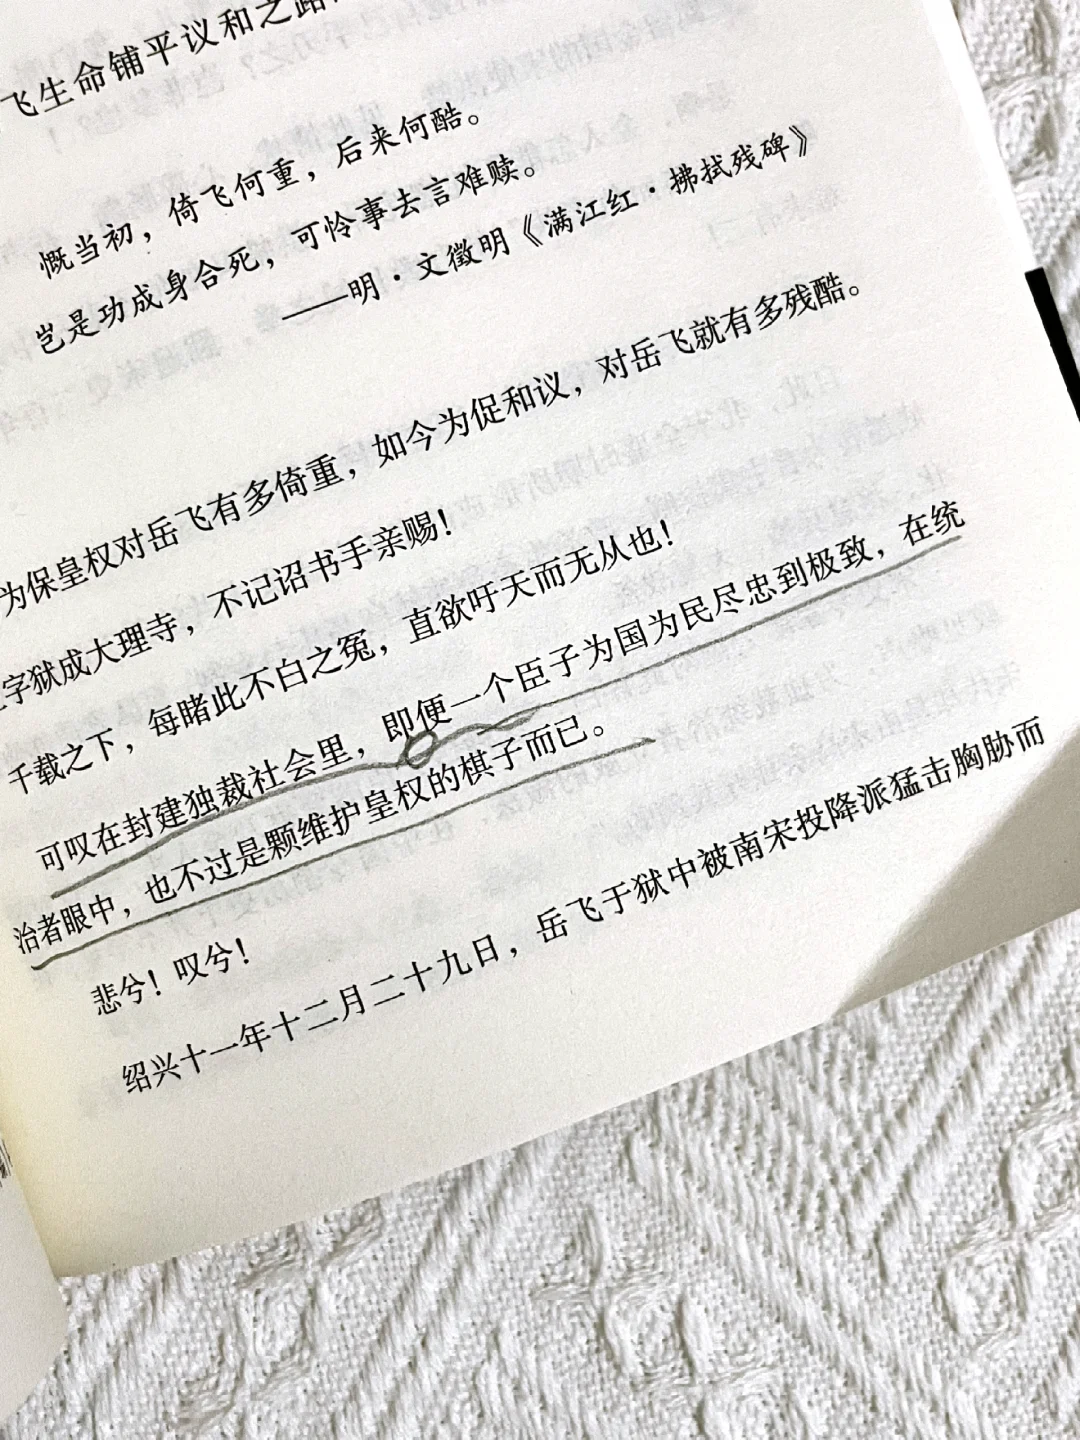 飞生命铺平议和之路
慨当初，倚飞何重，后来何酷。
岂是功成身合死，可怜事去言难赎。
——明·文徵明《满江红·拂拭残碑》
为保皇权对岳飞有多倚重，如今为促和议，对岳飞就有多残酷。
字狱成大理寺，不记诏书手亲赐！
千载之下，每睹此不白之冤，直欲吁天而无从也！
可叹在封建独裁社会里，即便一个臣子为国为民尽忠到极致，在统
治者眼中，也不过是颗维护皇权的棋子而已。
悲兮！叹兮！
绍兴十一年十二月二十九日，岳飞于狱中被南宋投降派猛击胸胁而